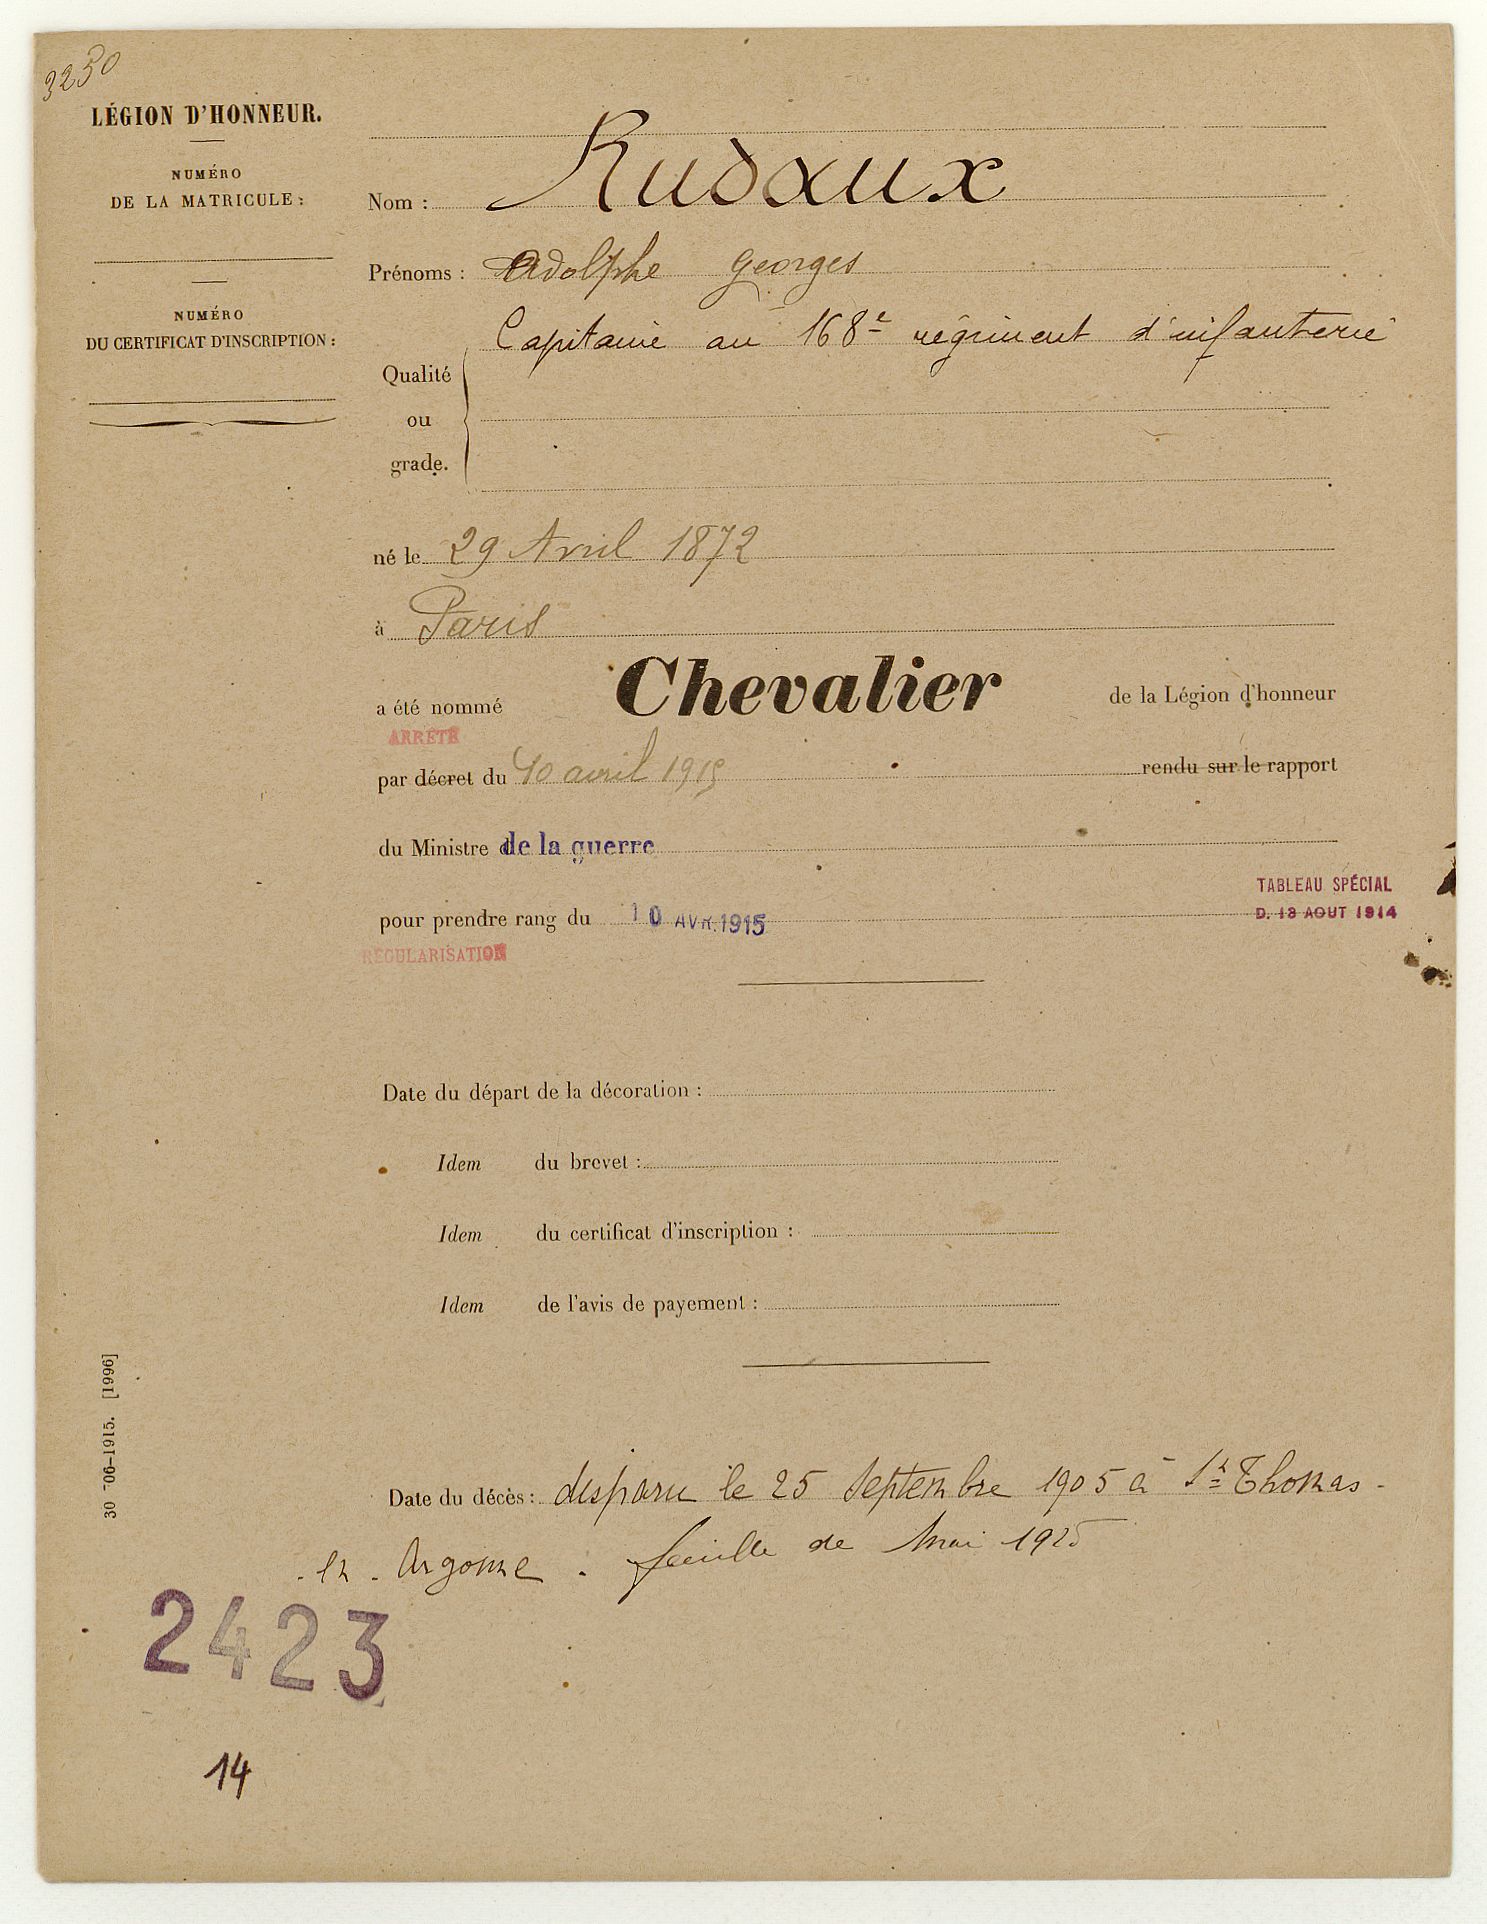 3230
LÉGION D'HONNEUR.
NUMÉRO
DE LA MATRICULE :
NUMÉRO
DU CERTIFICAT D'INSCRIPTION :
Nom : Rudaux
Prénoms : Adolphe Georges
Capitaine au 168e régiment d'infanterie
Qualité
ou
grade.
né le 29 Avril 1872
à Paris
a été nommé Chevalier de la Légion d'honneur
ARRÊTÉ
par décret du 10 avril 1915 rendu sur le rapport
du Ministre de la guerre
TABLEAU SPÉCIAL
pour prendre rang du 10 AVR. 1915 D. 13 AOUT 1914
RÉGULARISATION
Date du départ de la décoration :
Idem du brevet :
Idem du certificat d'inscription :
Idem de l'avis de payement :
30-706-1915. [1996]
Date du décès : disparu le 25 Septembre 1905 à St Thomas -
- en - Argonne . feuille de Mai 1925
2423
14